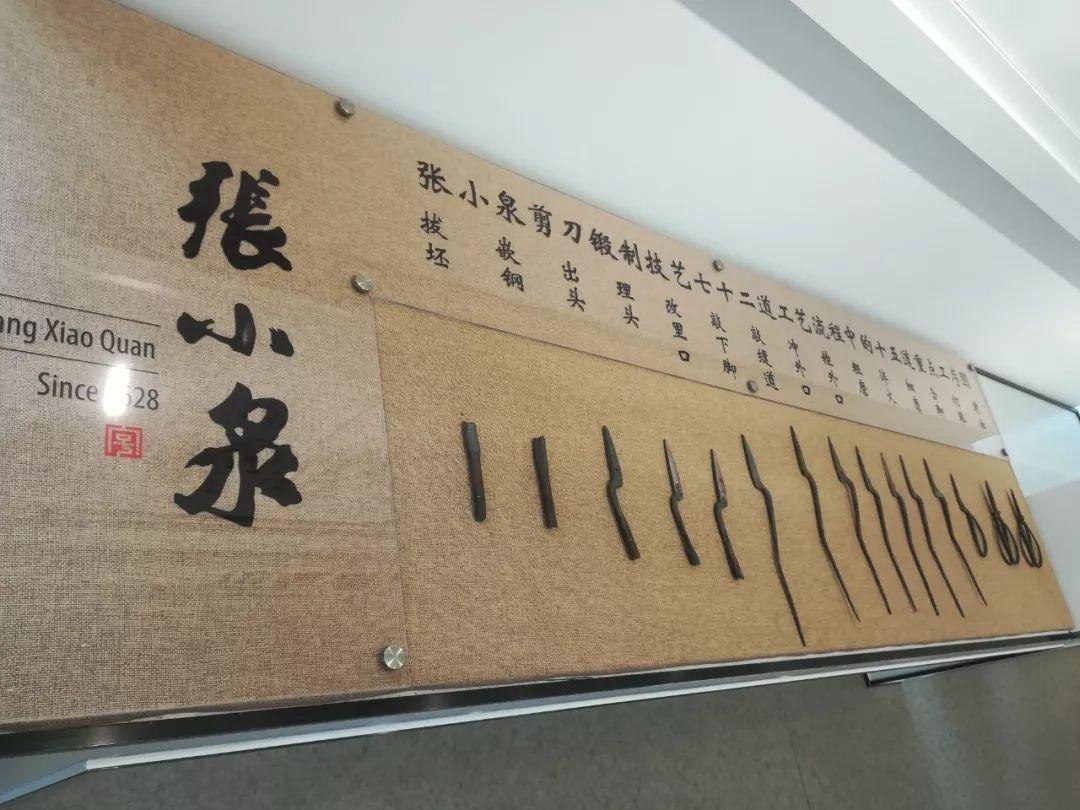 張小泉
ang Xiao Quan
Since 1628
号
张小泉剪刀锻制技艺七十二道工艺流程中的十五道重点工序图
拔坯
嵌钢
出头
理头
改里口
敲下脚
敲缝道
冲外口